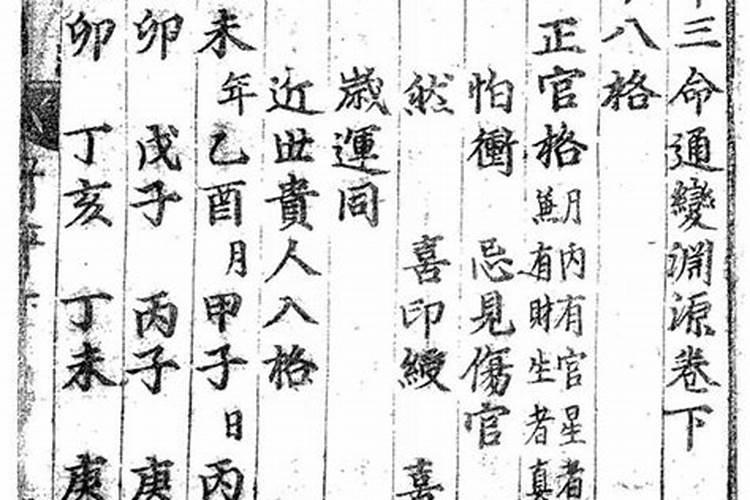 三命通變淵源卷下
八格
正官格 月内有官星者
兼有財生者真
怕衝 忌見傷官
然 喜印綬 喜
歳運同
近世貴人入格
未年乙酉月甲子日丙
卯 戊子 丙子 庚
卯 丁亥 丁未 庚